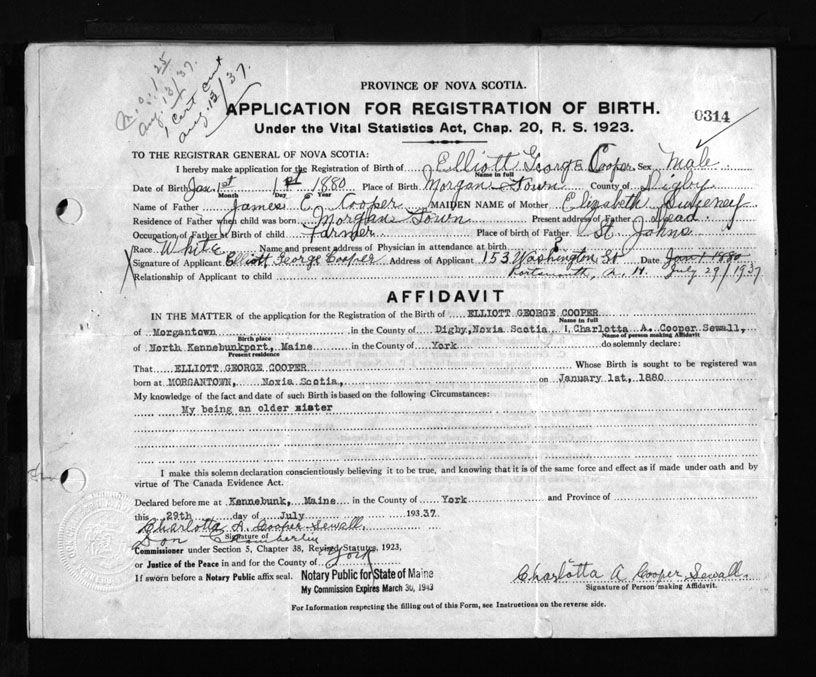 M.O. 1.25
Aug. 13/37.
1 Cert sent
Aug. 13/37.
PROVINCE OF NOVA SCOTIA.
APPLICATION FOR REGISTRATION OF BIRTH.
0314
Under the Vital Statistics Act, Chap. 20, R. S. 1923.
TO THE REGISTRAR GENERAL OF NOVA SCOTIA:
I hereby make application for the Registration of Birth of Elliott George Cooper Sex Male
Name in full
Date of Birth Jan. 1st 1st 1880 Place of Birth Morgan Town County of Digby
Month Day Year
Name of Father James E. Cooper MAIDEN NAME of Mother Elizabeth Sweeney
Residence of Father when child was born Morgan Town Present address of Father Dead
Occupation of Father at Birth of child Farmer Place of birth of Father St Johns
Race White Name and present address of Physician in attendance at birth ?
Signature of Applicant Elliott George Cooper Address of Applicant 153 Washington St Date Jan 1 1880
Relationship of Applicant to child Portsmouth, N. H. July 29/1937
AFFIDAVIT
IN THE MATTER of the application for the Registration of the Birth of ELLIOTT GEORGE COOPER
Name in full
of Morgantown in the County of Digby,Noxia Scotia I, Charlotta A. Cooper Sewall,
Birth place Name of person making Affidavit
of North Kennebunkport, Maine in the County of York do solemnly declare:
Present residence
That ELLIOTT GEORGE COOPER Whose Birth is sought to be registered was
born at MORGANTOWN, Noxia Scotia, on January 1st, 1880
My knowledge of the fact and date of such Birth is based on the following Circumstances:
My being an older sister
I make this solemn declaration conscientiously believing it to be true, and knowing that it is of the same force and effect as if made under oath and by
virtue of The Canada Evidence Act.
Declared before me at Kennebunk, Maine in the County of York and Province of
this 29th day of July 1937
Charlotta A. Cooper Sewall
Don Chamberlin
Signature of
Commissioner under Section 5, Chapter 38, Revised Statutes, 1923,
or Justice of the Peace in and for the County of York
If sworn before a Notary Public affix seal. Notary Public for State of Maine
My Commission Expires March 30, 1943
Charlotta A. Cooper Sewall.
Signature of Person making Affidavit.
For Information respecting the filling out of this Form, see Instructions on the reverse side.